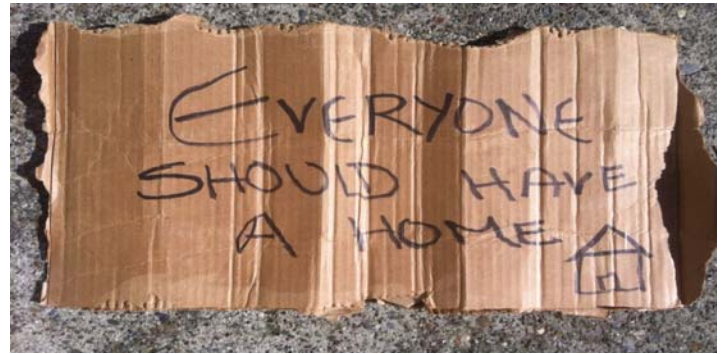 EVERYONE
SHOULD HAVE
A HOME